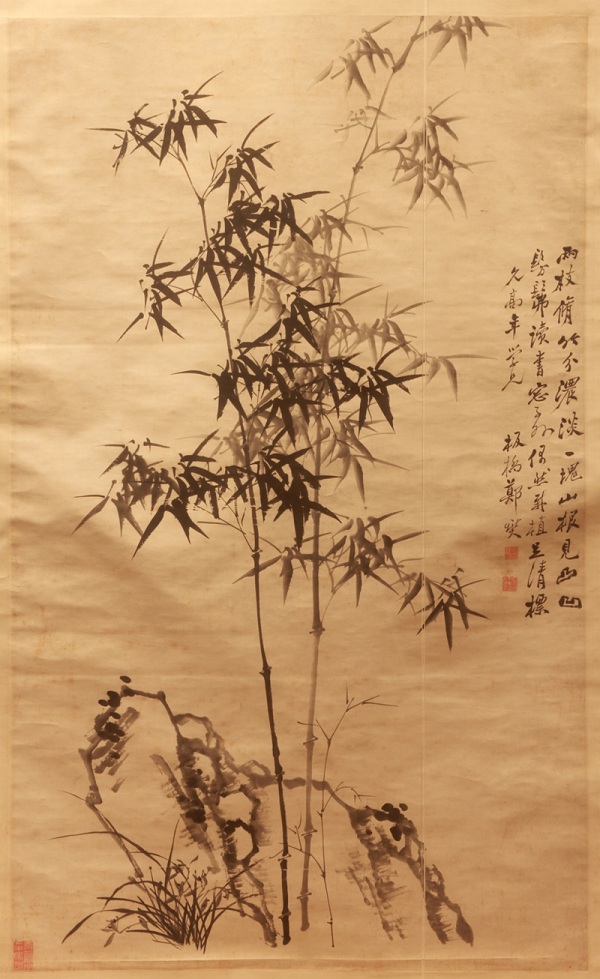 兩枝脩竹分濃淡一塊山根見凸凹
髣髴讀書窗子外偶然新植足清標
久高年學兄
板橋鄭燮